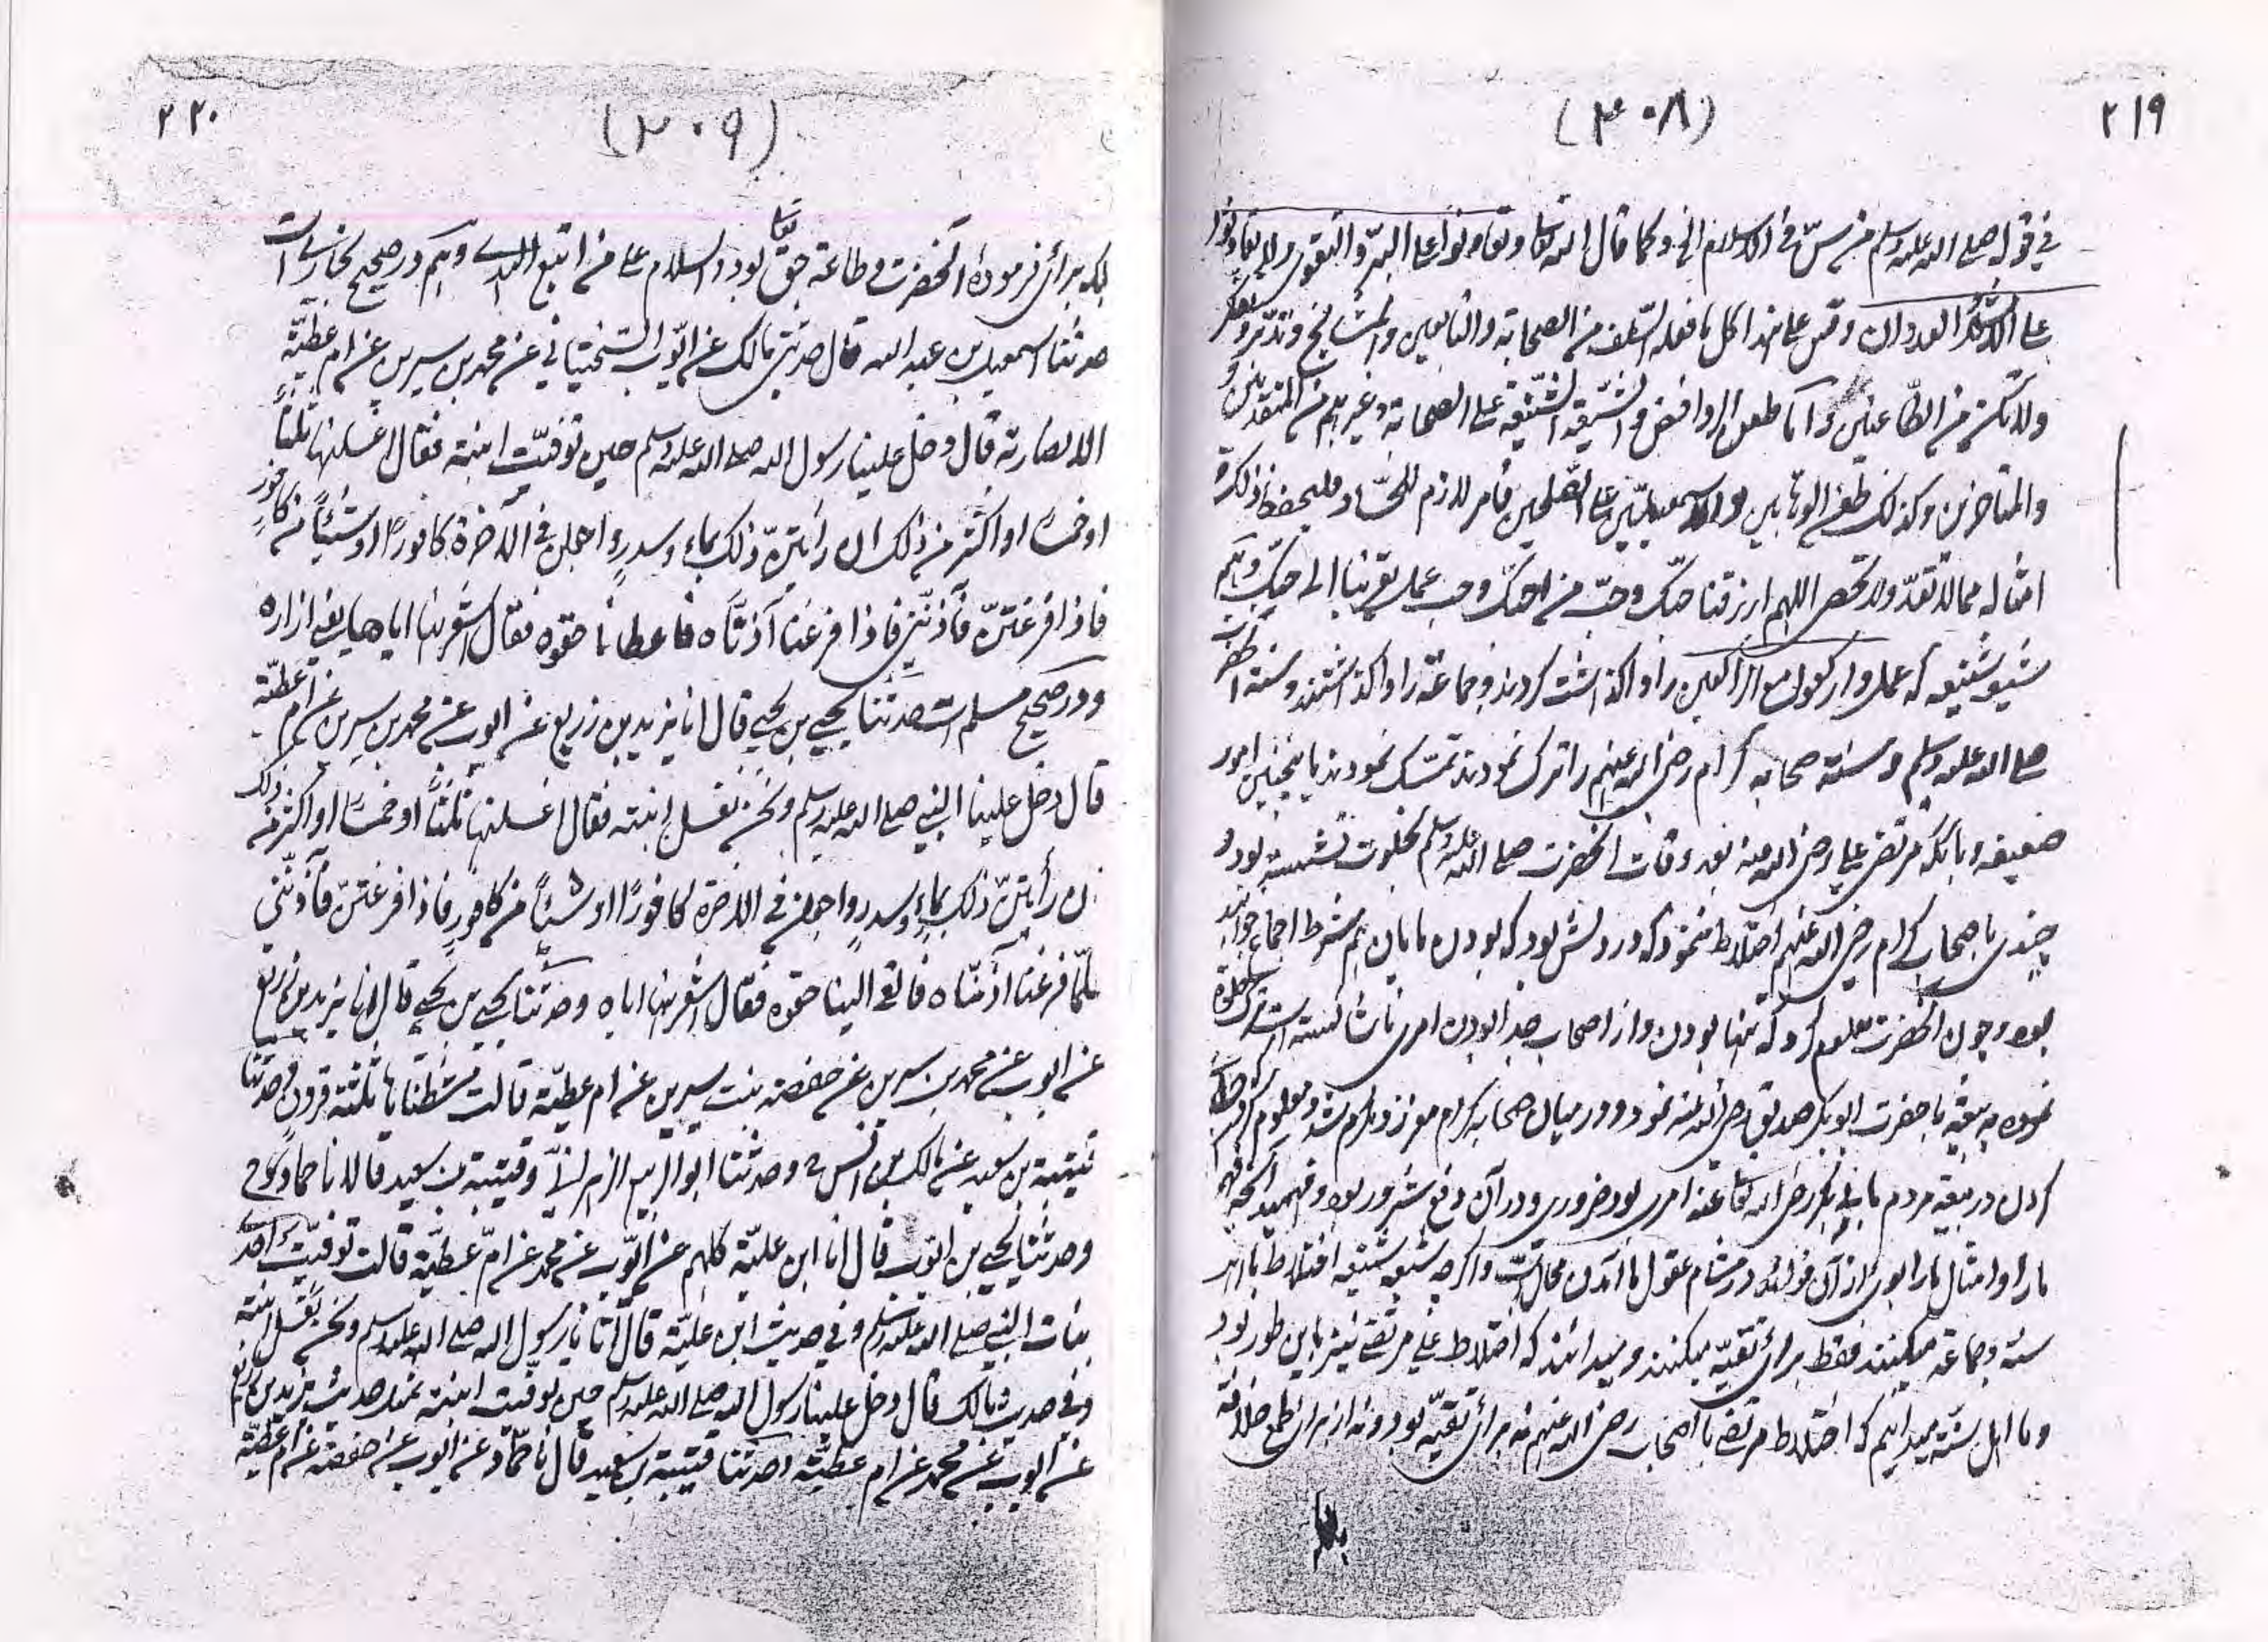 ٢١٩
(٣٠٨)
في قوله صلى الله عليه وسلم من سنّ في الاسلام الخ وكما قال الله تعالى وتعاونوا على البرّ والتقوى ولا تعاونوا
على الاثم والعدوان وقس على هذا كل ما فعله السّلف من الصحابة والتابعين والمشايخ وتدبّر وتفكر
ولا تكن من الطّاعنين وأما طعن الروافض والشيعة الشنيعة على الصحابة وغيرهم من المتقدمين و
والمتاخرين وكذلك طعن الوهابيين والاسمعيليّين على الصّلحين فامر لازم للحسّاد فليحفظ ذلك
امثاله مما لا تعدّ ولا تحصى اللهم ارزقنا حبّك وحبّ من احبّك وحب عمل يقربنا الى حبك وهم
شيعه شنيعه كه عمل واركعوا مع الراكعين را واگذاشت كردند وجماعة را واگذاشتند وسنة آنحضرت
صلى الله عليه وسلم وسنة صحابه كرام رضى الله عنهم را ترك نمودند تمسّك نمودند باينچنين امور
ضعيفه وبآنكه مرتضى على رضى الله عنه بعد وفات آنحضرت صلى الله عليه وسلم بخلوت نشسته بود و
چندى باصحاب كرام رضى الله عنهم اختلاط ننمود كه در دلش بود كه بودن مايان هم شرط اجماع خواهد
بود وچون آنحضرت معلوم كرد كه تنها بودن واز اصحاب جدا بودن امرى ناشائسته است ترك خلوة
نموده بيعة با حضرت ابوبكر صديق رضى الله عنه نمود ودر ميان صحابه كرام معزز ومكرم شد ومعلوم
كردن در بيعة مردم با ابى بكر رضى الله تعالى عنه امرى بود ضرورى ودر آن دفع شرور بود وفهميد آنچه
ما را وامثال ما را بوى از آن فوائد در مشام عقول ما آمدن محال است واگرچه شيعه شنيعه اختلاط با اهل
سنة وجماعة ميكنند فقط براى تقيّه ميكنند وميدانند كه اختلاط على مرتضى نيز باين طور بود
وما اهل سنّة ميدانيم كه اختلاط مرتضى با اصحاب رضى الله عنهم نه براى تقيّه بود ونه از براى طمع خلافة
بلكه
٢٢٠
(٣٠٩)
بلكه براى فرمودهٔ آنحضرت وطاعة حق تعالى بود والسلام على من اتبع الهدى وهم در صحيح بخارى است
حدثنا اسمعيل بن عبد الله قال حدثنى مالك عن ايّوب السّختيانى عن محمد بن سيرين عن ام عطيّة
الانصارية قال دخل علينا رسول الله صلى الله عليه وسلم حين توفيت ابنته فقال اغسلنها ثلثاً
او خمسًا او اكثر من ذلك ان رأيتنّ ذلك بماء وسدرٍ واجعلن فى الآخرة كافورًا او شيئاً من كافور
فاذا فرغتنّ فآذنّنى فاذا فرغنا آذنّاه فاعطانا حقوه فقال اشعرنها اياه يعنى ازاره
ودر صحيح مسلم است حدثنا يحيى بن يحيى قال انا يزيد بن زريع عن ايوب عن محمد بن سيرين عن ام عطيّة
قال دخل علينا النبى صلى الله عليه وسلم ونحن نغسل ابنته فقال اغسلنها ثلثاً او خمسًا او اكثر من ذلك
ان رأيتنّ ذلك بماءٍ وسدرٍ واجعلن فى الاخرة كافورًا او شيئاً من كافورٍ فاذا فرغتنّ فآذنّنى
فلمّا فرغنا آذنّاه فالقى الينا حقوه فقال اشعرنها اياه وحدثنا يحيى بن يحيى قال انا يزيد بن زريع
عن ايوب عن محمد بن سيرين عن حفصة بنت سيرين عن ام عطيّة قالت مشطناها ثلثة قرون وحدثنا
قتيبة بن سعيد عن مالك بن انس ح وحدثنا ابو الربيع الزهرانىّ وقتيبة بن سعيد قالا نا حماد ح
وحدثنا يحيى بن ايّوب قال انا ابن عليّة كلهم عن ايّوب عن محمد عن امّ عطيّة قالت توفيّت احدى
بنات النبى صلى الله عليه وسلم وفى حديث ابن عليّة قال اتانا رسول الله صلى الله عليه وسلم ونحن نغسل ابنته
وفى حديث مالك قال دخل علينا رسول الله صلى الله عليه وسلم حين توفيت ابنته بمثل حديث يزيد بن زريع
عن ايوب عن محمد عن ام عطيّة وحدثنا قتيبة بن سعيد قال نا حمّاد عن ايوب عن حفصة عن ام عطيّة